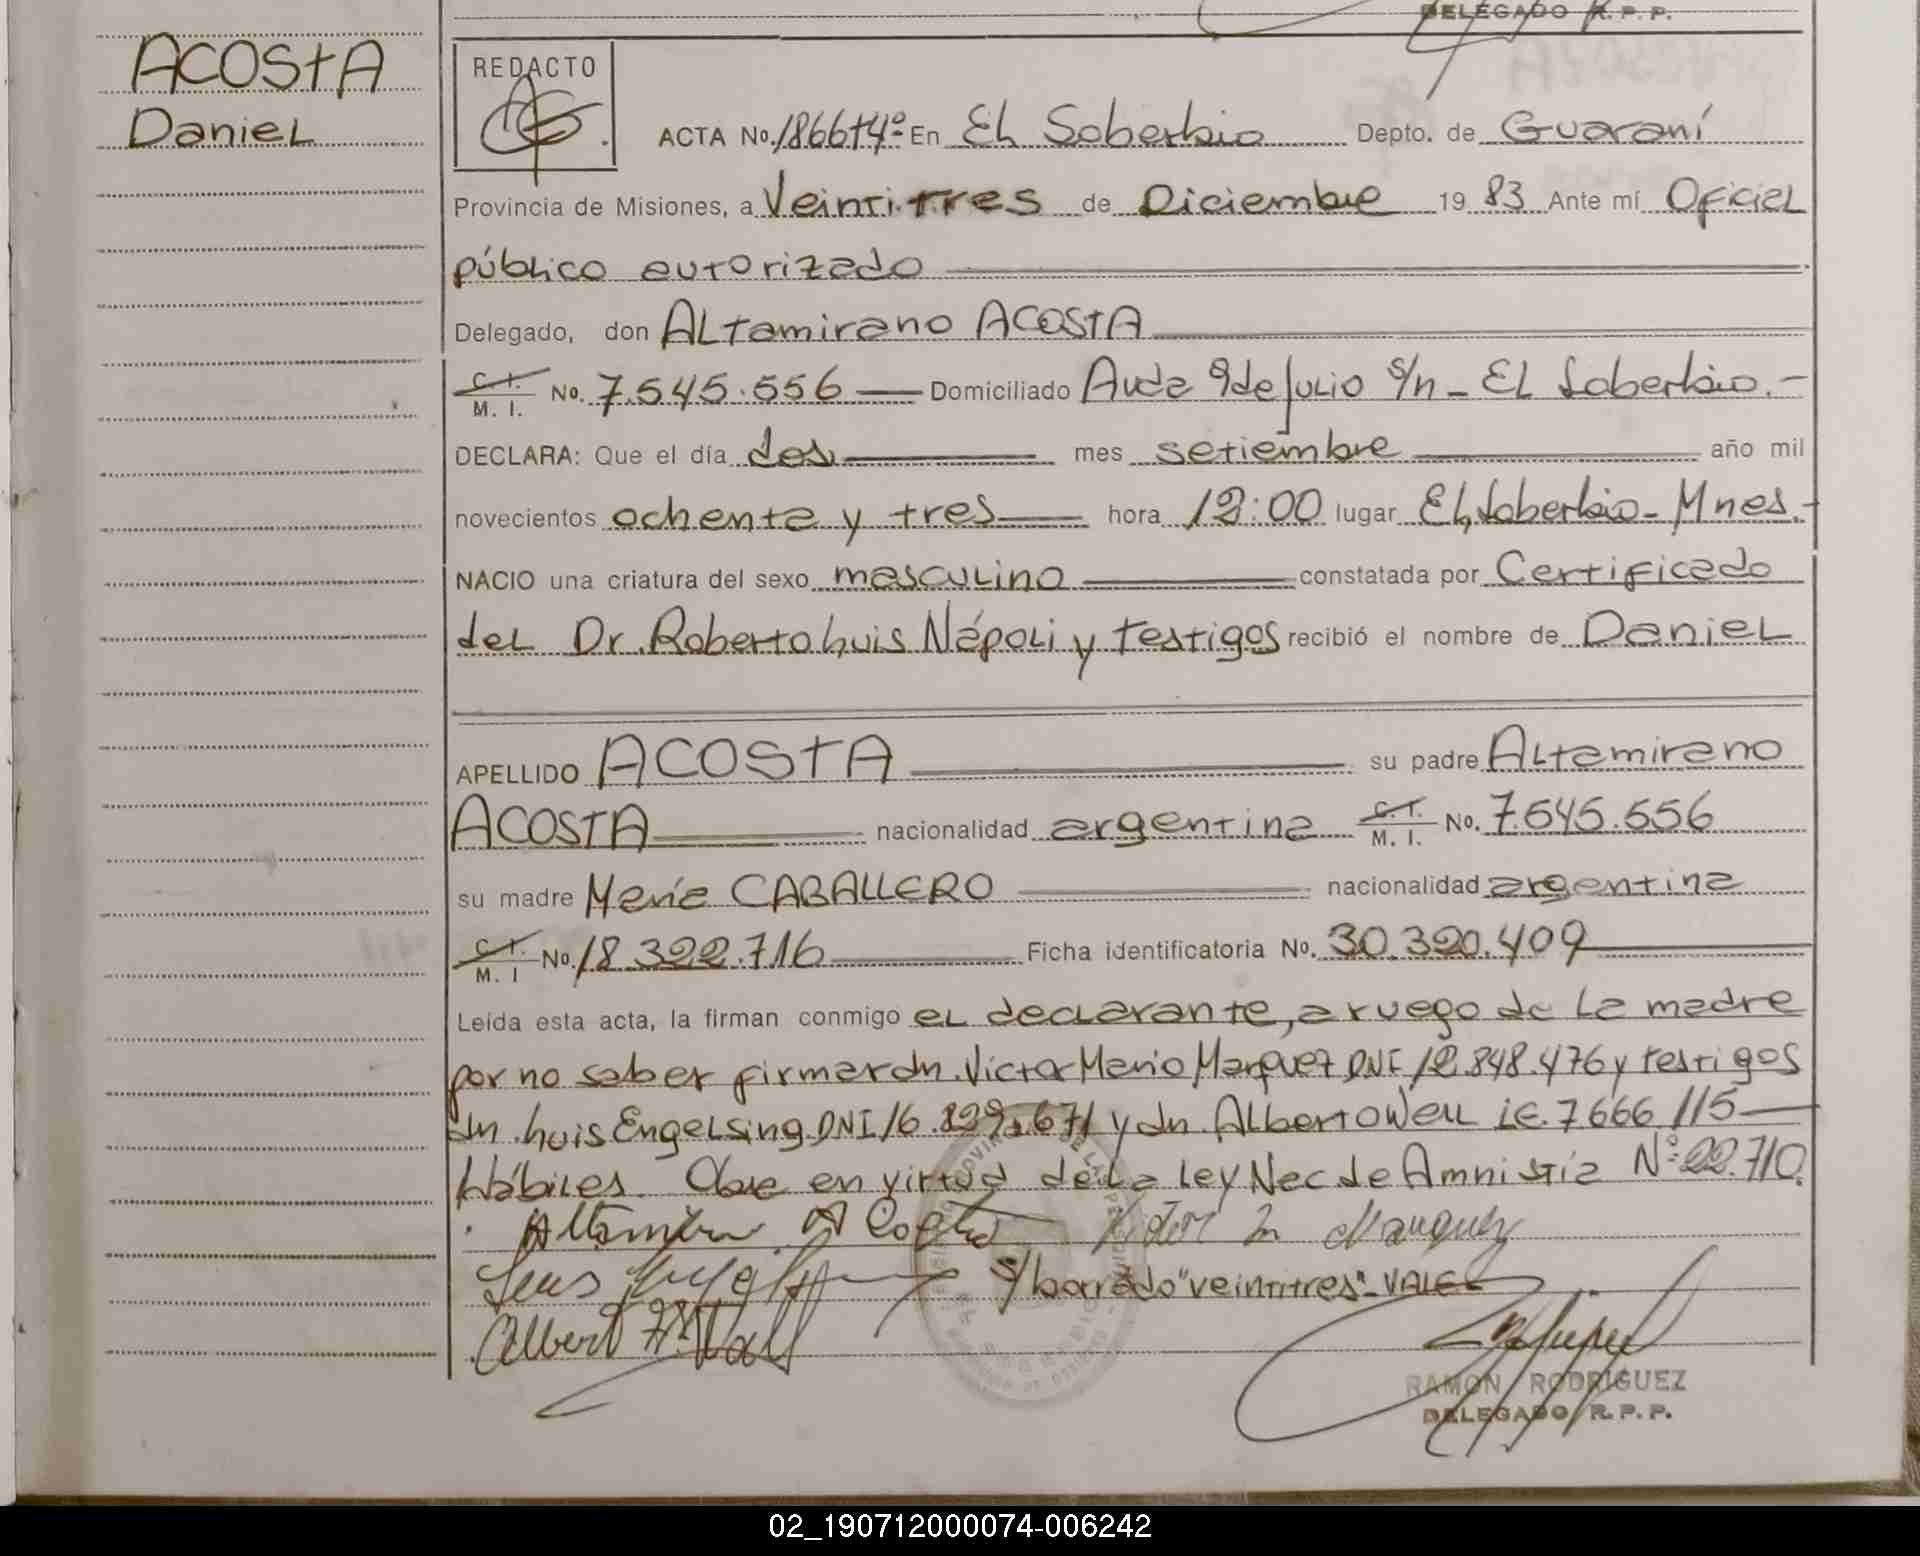 DELEGADO R. P. P.
ACOSTA
Daniel
REDACTO
ACTA No. 1866t4º En El Soberbio Depto. de Guaraní
Provincia de Misiones, a Veintitres de Diciembre 19 83 Ante mí Oficial
público autorizado
Delegado, don Altamirano ACOSTA
C. I. / M. I. No. 7.545.556 Domiciliado Avda 9 de Julio s/n - El Soberbio.-
DECLARA: Que el día dos mes setiembre año mil
novecientos ochenta y tres hora 12:00 lugar El Soberbio - Mnes.-
NACIO una criatura del sexo masculino constatada por Certificado
del Dr. Roberto Luis Nápoli y testigos recibió el nombre de Daniel
APELLIDO ACOSTA su padre Altamirano
ACOSTA nacionalidad argentina C. I. / M. I. No. 7.545.556
su madre María CABALLERO nacionalidad argentina
C. I. / M. I No. 18.322.716 Ficha identificatoria No. 30.320.409
Leída esta acta, la firman conmigo el declarante, a ruego de la madre
por no saber firmar dn. Victor Mario Marquez DNI 12.848.476 y testigos
dn. Luis Engelsing DNI 16.829.671 y dn. Alberto Well LE. 7666115
Hábiles. Obre en virtud de la Ley Nac de Amnistía Nº 22.710.
Altamirano Acosta Victor M Marquez
Luis s/borrado "veintitres"- VALE
Albert
RAMON RODRIGUEZ
DELEGADO R. P. P.
02_190712000074-006242